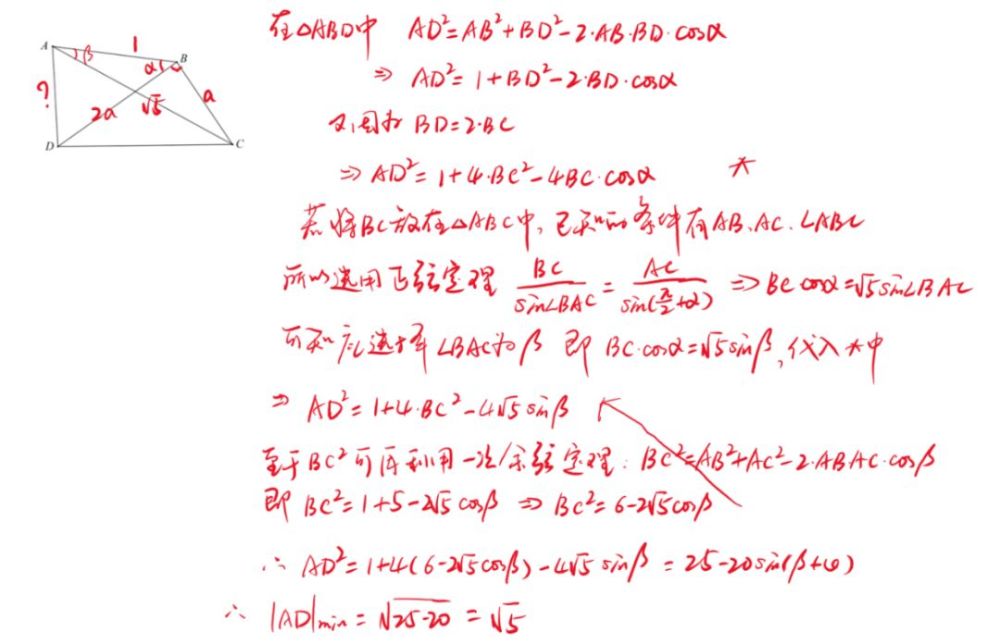 A 1 B β α 2a √5 a ? D C
在△ABD中 AD²=AB²+BD²-2·AB·BD·cosα
⇒ AD²=1+BD²-2·BD·cosα
又因为 BD=2·BC
⇒ AD²=1+4·BC²-4BC·cosα *
若将BC放在△ABC中,已知的条件有AB、AC、∠ABC
所以选用正弦定理 BC/sin∠BAC = AC/sin(π/2+α) ⇒ BC cosα=√5 sin∠BAC
可知应选择∠BAC为β 即 BC·cosα=√5 sinβ,代入*中
⇒ AD²=1+4·BC²-4√5 sinβ
至于BC²可再利用一次余弦定理:BC²=AB²+AC²-2·AB·AC·cosβ
即 BC²=1+5-2√5 cosβ ⇒ BC²=6-2√5 cosβ
∴ AD²=1+4(6-2√5 cosβ)-4√5 sinβ = 25-20 sin(β+φ)
∴ |AD|min = √25-20 = √5